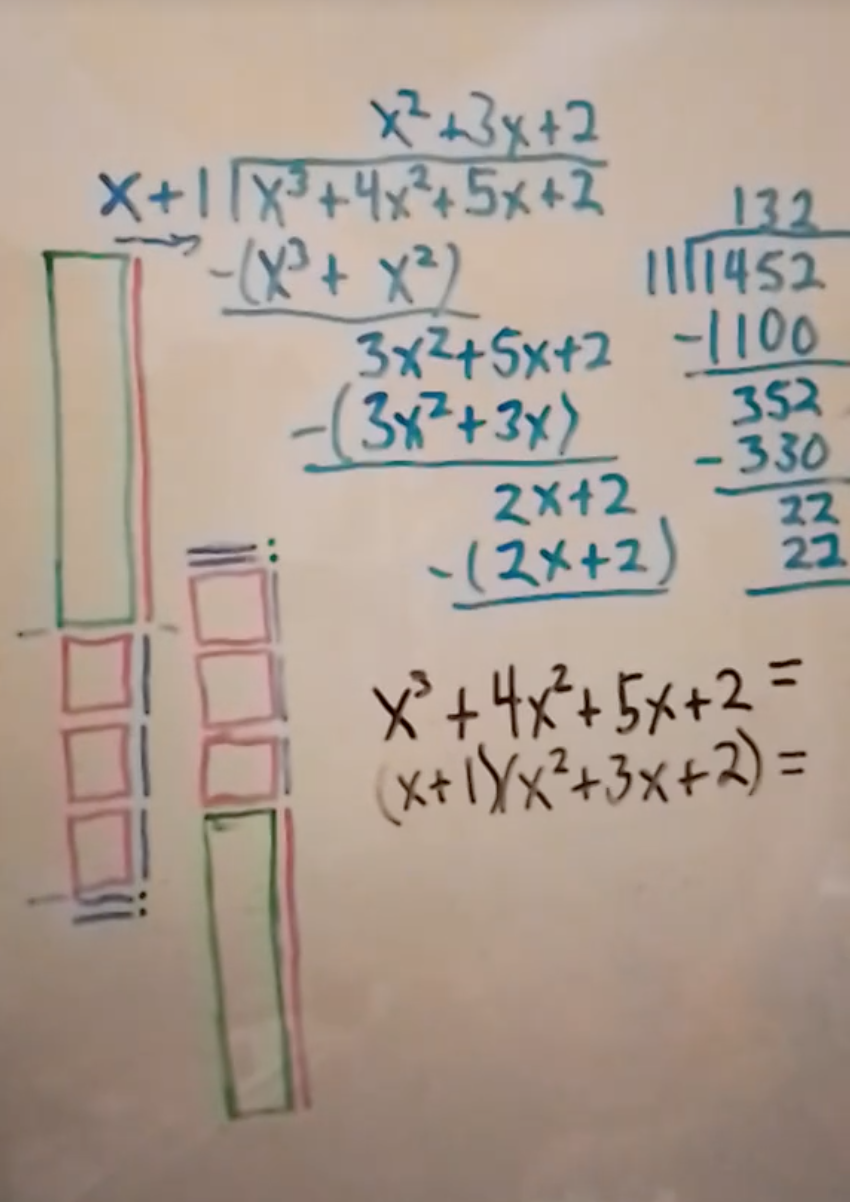 x²+3x+2
x+1 x³+4x²+5x+2
-(x³+ x²)
3x²+5x+2
-(3x²+3x)
2x+2
-(2x+2)
132
11 1452
-1100
352
-330
22
22
x³+4x²+5x+2=
(x+1)(x²+3x+2)=